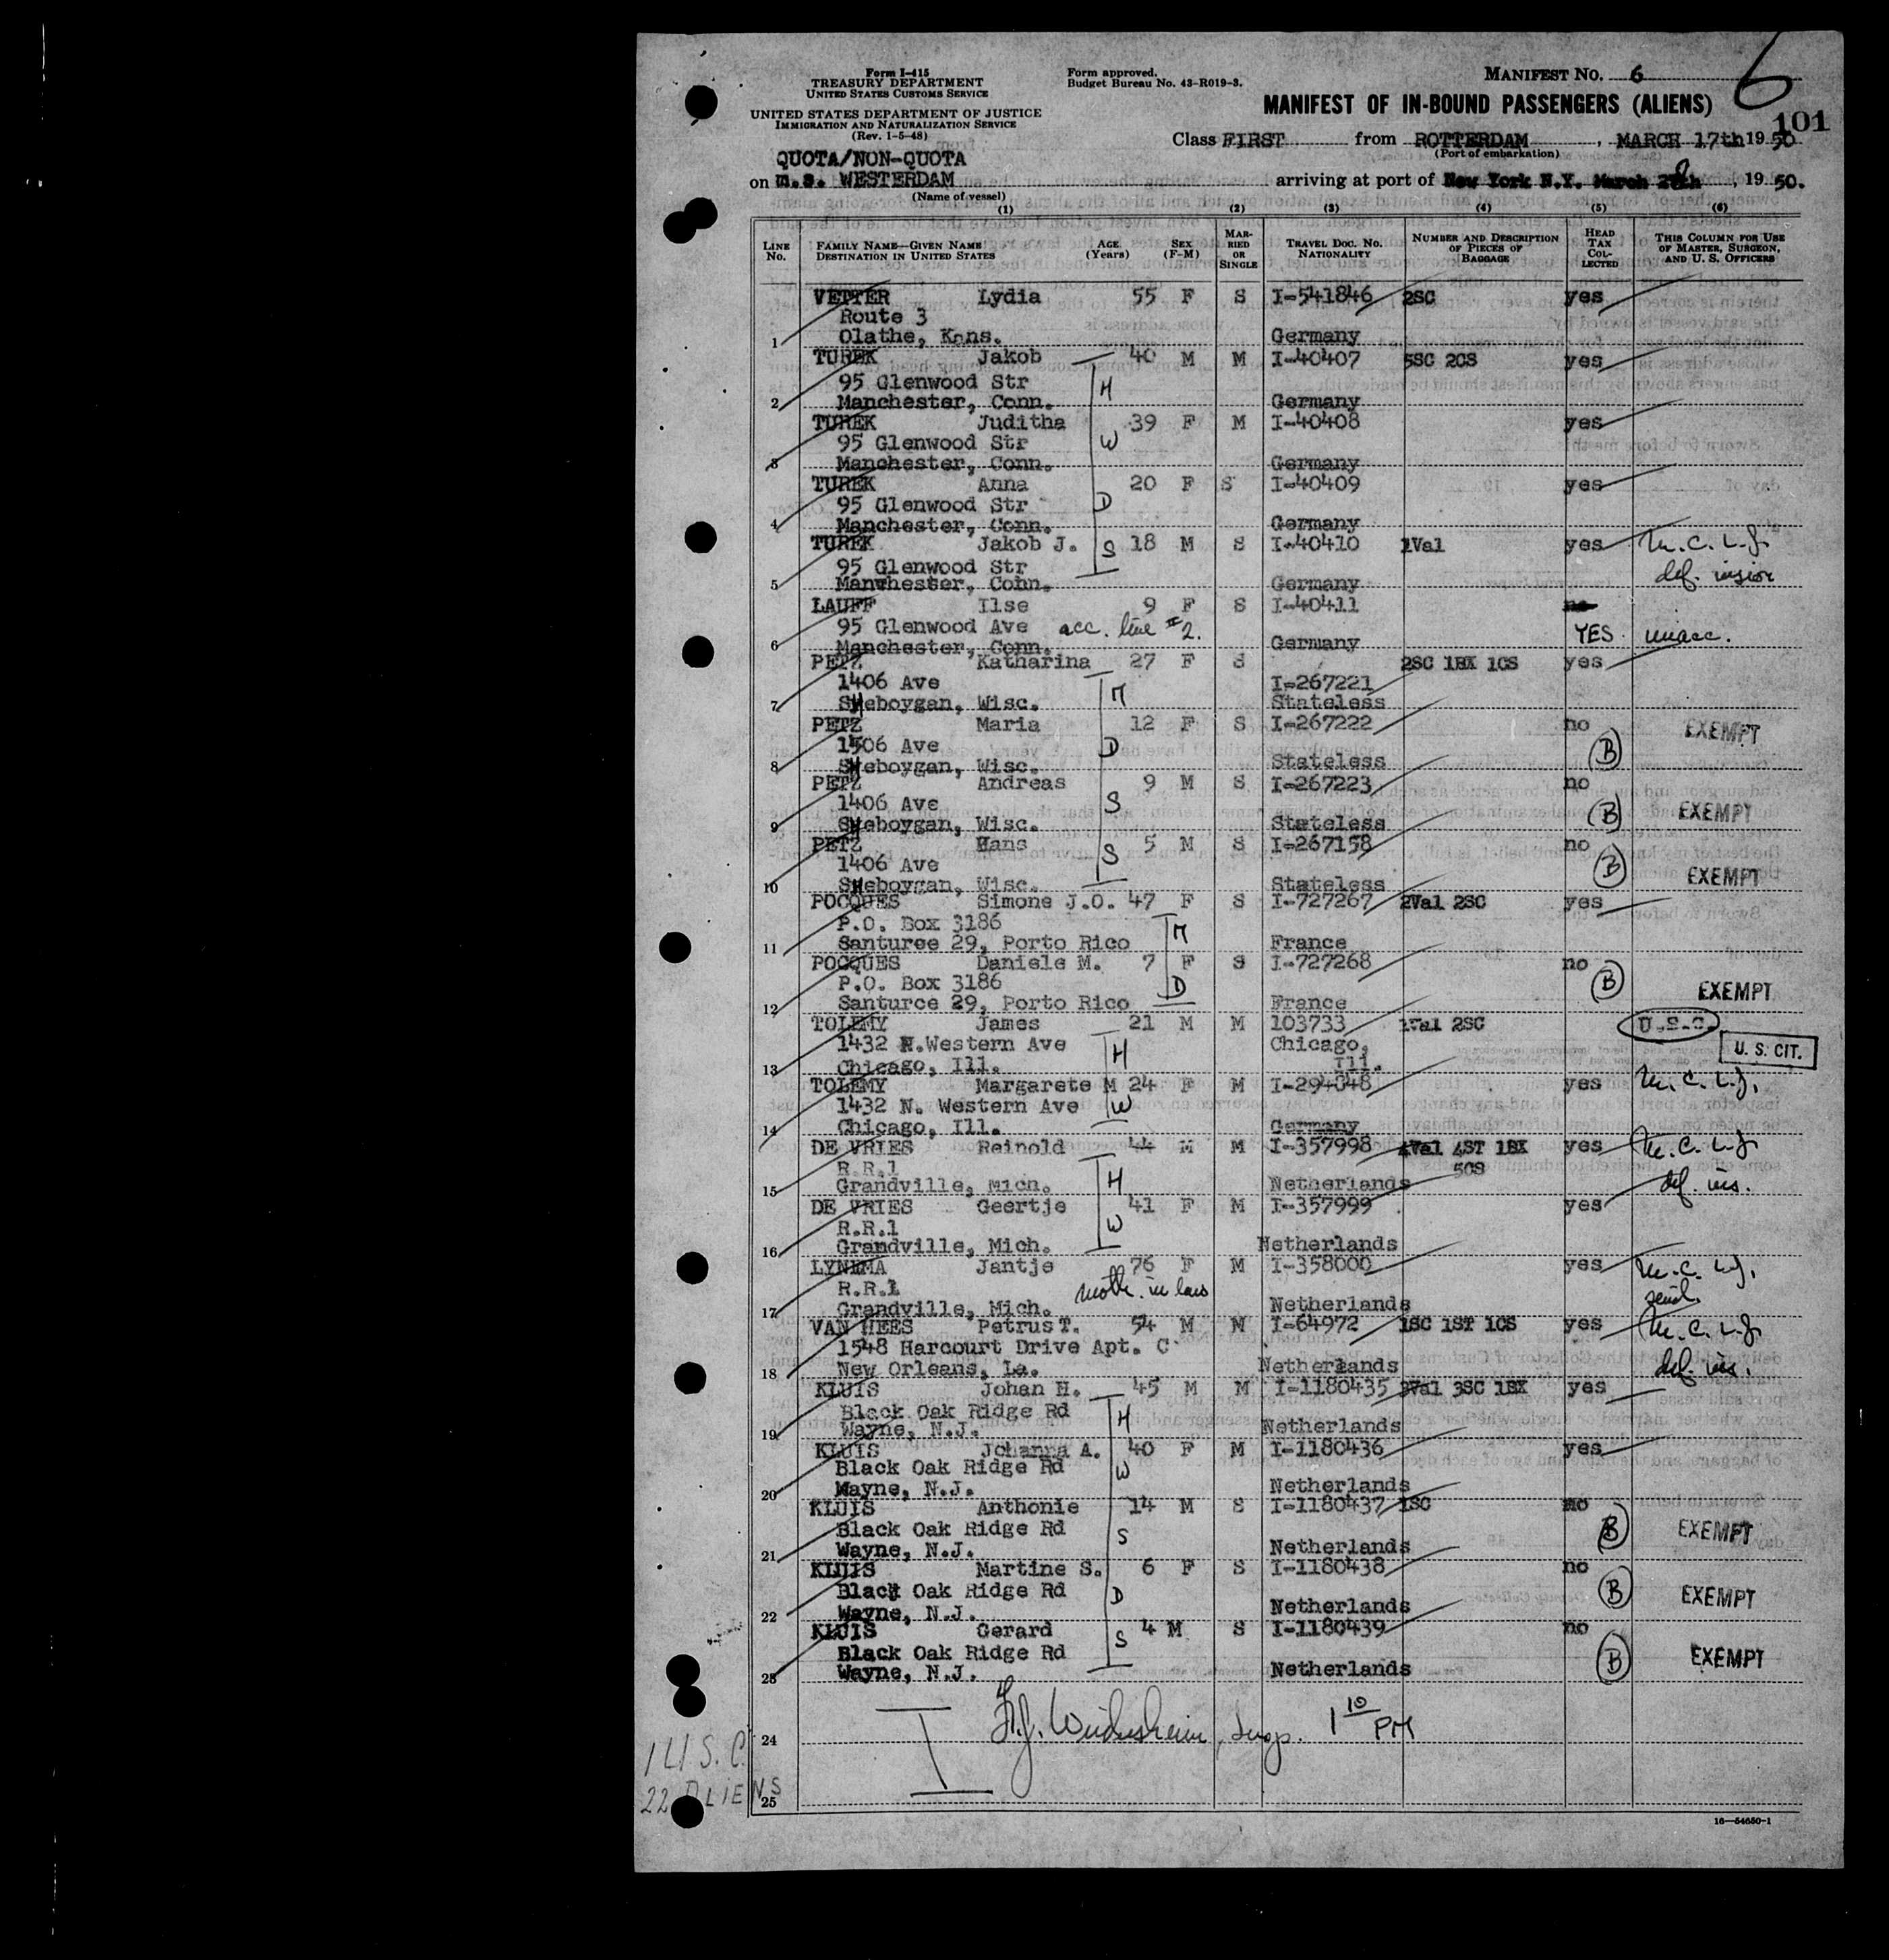 Form I-415
TREASURY DEPARTMENT
UNITED STATES CUSTOMS SERVICE
UNITED STATES DEPARTMENT OF JUSTICE
IMMIGRATION AND NATURALIZATION SERVICE
(Rev. 1-5-48)
Form approved.
Budget Bureau No. 43-R019-3.
MANIFEST NO. 6
6
MANIFEST OF IN-BOUND PASSENGERS (ALIENS)
101
Class FIRST from ROTTERDAM, MARCH 17th 1950
(Port of embarkation)
QUOTA/NON-QUOTA
on m.s. WESTERDAM arriving at port of New York N.Y. March 28th, 1950.
(Name of vessel)
(1) (2) (3) (4) (5) (6)
LINE No. FAMILY NAME—GIVEN NAME DESTINATION IN UNITED STATES AGE (Years) SEX (F-M) MARRIED OR SINGLE TRAVEL DOC. NO. NATIONALITY NUMBER AND DESCRIPTION OF PIECES OF BAGGAGE HEAD TAX COLLECTED THIS COLUMN FOR USE OF MASTER, SURGEON, AND U. S. OFFICERS
VETTER Lydia 55 F S I-541846 2SC yes
Route 3
1 Olathe, Kans. Germany
TUREK Jakob 40 M M I-40407 5SC 2CS yes
95 Glenwood Str H
2 Manchester, Conn. Germany
TUREK Juditha 39 F M I-40408 yes
95 Glenwood Str W
3 Manchester, Conn. Germany
TUREK Anna 20 F S I-40409 yes
95 Glenwood Str D
4 Manchester, Conn. Germany
TUREK Jakob J. S 18 M S I-40410 1Val yes M.C.L.J.
95 Glenwood Str def. vision
5 Manchester, Conn. Germany
LAUFF Ilse 9 F S I-40411 no
95 Glenwood Ave acc. line #2. YES unacc.
6 Manchester, Conn. Germany
PETZ Katharina 27 F S 2SC 1BX 1CS yes
1406 Ave M I-267221
7 SHeboygan, Wisc. Stateless
PETZ Maria 12 F S I-267222 no EXEMPT
1406 Ave D B
8 SHeboygan, Wisc. Stateless
PETZ Andreas 9 M S I-267223 no
1406 Ave S B EXEMPT
9 SHeboygan, Wisc. Stateless
PETZ Hans 5 M S I-267158 no
1406 Ave S B EXEMPT
10 SHeboygan, Wisc. Stateless
POCQUES Simone J.O. 47 F S I-727267 2Val 2SC yes
P.O. Box 3186 M
11 Santurce 29, Porto Rico France
POCQUES Daniele M. 7 F S I-727268 no
P.O. Box 3186 D B EXEMPT
12 Santurce 29, Porto Rico France
TOLEMY James 21 M M 103733 1Val 2SC U.S.C.
1432 N.Western Ave H Chicago, U. S. CIT.
13 Chicago, Ill. Ill.
TOLEMY Margarete M 24 F M I-294848 yes M.C.L.J.
1432 N. Western Ave W
14 Chicago, Ill. Germany
DE VRIES Reinold 44 M M I-357998 4Val 4ST 1BX yes M.C.L.J.
R.R.1 H 5CS
15 Grandville, Mich. Netherlands def. vis.
DE VRIES Geertje 41 F M I-357999 yes
R.R.1 W
16 Grandville, Mich. Netherlands
LYNEMA Jantje 76 F M I-358000 yes M.C.L.J.
R.R.1 moth. in law senil.
17 Grandville, Mich. Netherlands
VAN HEES Petrus T. 54 M M I-64972 1SC 1ST 1CS yes M.C.L.J.
1548 Harcourt Drive Apt. C
18 New Orleans, La. Netherlands def. vis.
KLUIS Johan H. 45 M M I-1180435 3SC 1BX yes
Black Oak Ridge Rd H
19 Wayne, N.J. Netherlands
KLUIS Johanna A. 40 F M I-1180436 yes
Black Oak Ridge Rd W
20 Wayne, N.J. Netherlands
KLUIS Anthonie 14 M S I-1180437 1SC no
Black Oak Ridge Rd S B EXEMPT
21 Wayne, N.J. Netherlands
KLUIS Martine S. 6 F S I-1180438 no
Black Oak Ridge Rd D B EXEMPT
22 Wayne, N.J. Netherlands
KLUIS Gerard 4 M S I-1180439 no
Black Oak Ridge Rd S B EXEMPT
23 Wayne, N.J. Netherlands
1 10 PM
24
1 U S. C.
22 ALIENS
25
16—54650-1